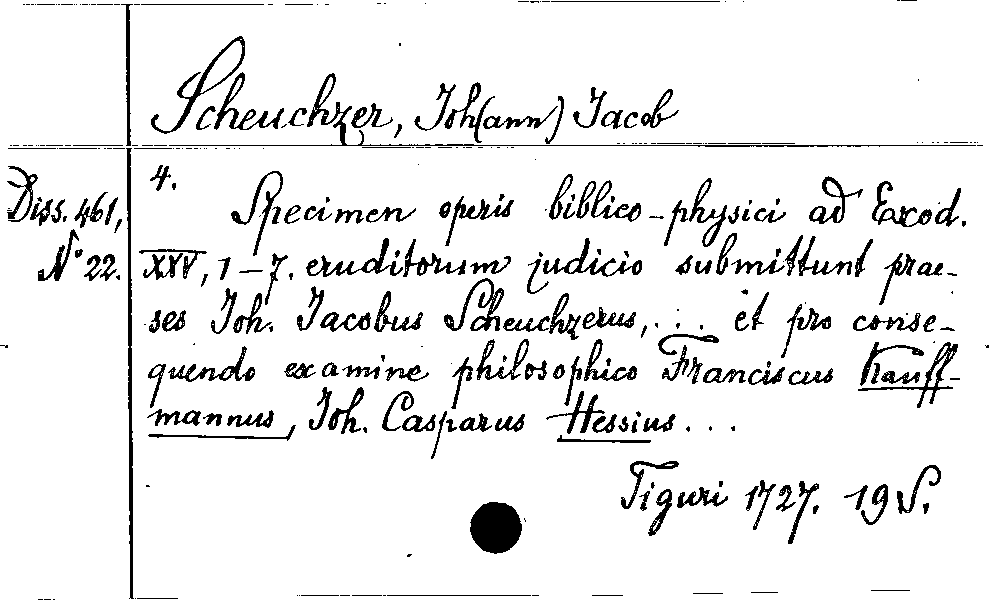 Scheuchzer, Joh(ann) Jacob
Diss. 461,
N° 22.
4.
Specimen operis biblico-physici ad Exod.
XXV, 1-7. eruditorum judicio submittunt prae-
ses Joh. Jacobus Scheuchzerus, ... et pro conse-
quendo examine philosophico Franciscus Kauff-
mannus, Joh. Casparus Hessius ...
Tiguri 1727. 19 S.